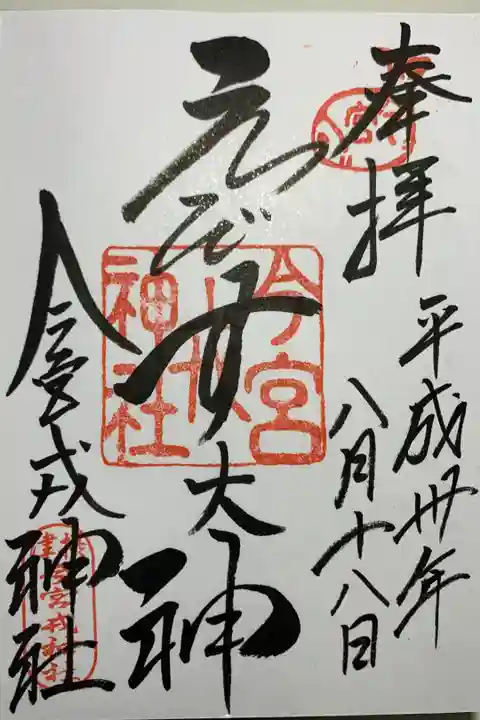 奉拝
平成卅年
八月十八日
ゑびす大神
今宮戎神社
今宮
戎
神社